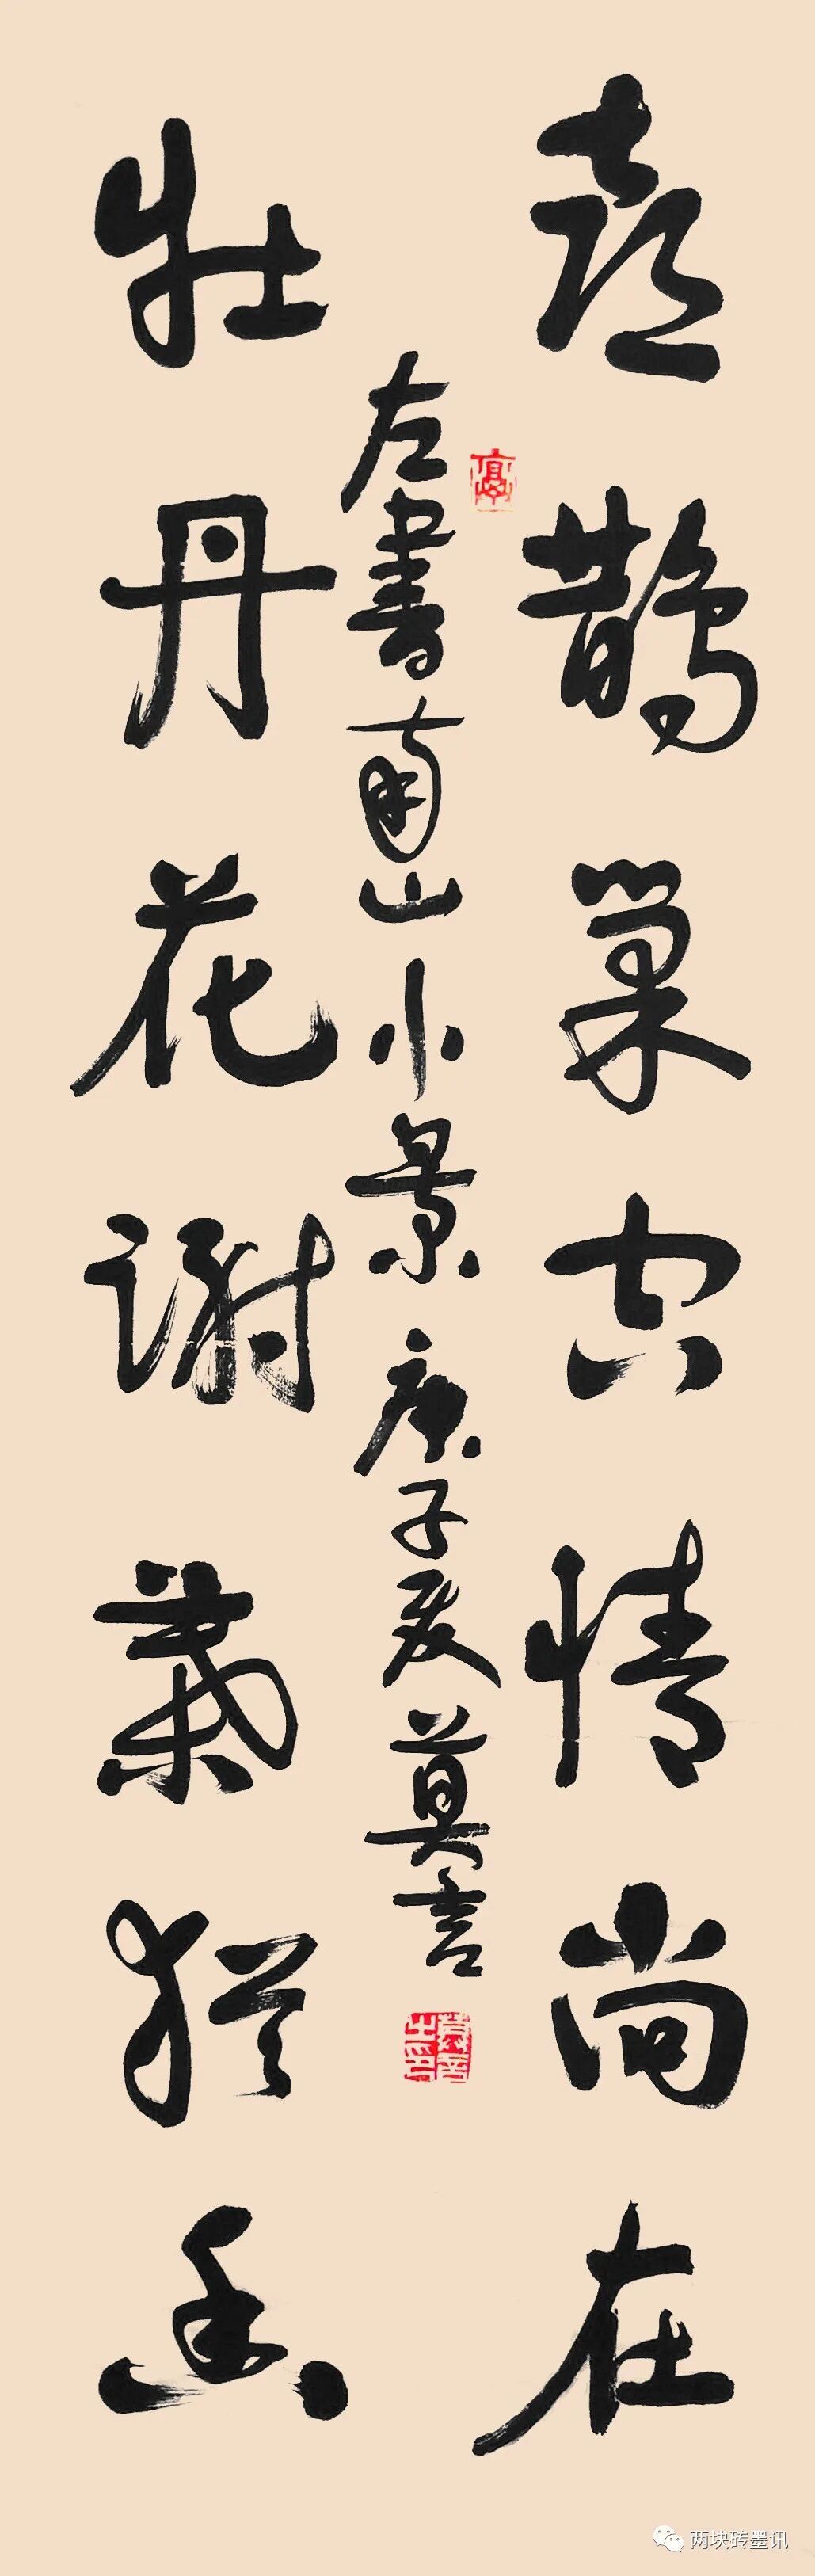 喜鹊巢空情尚在
牡丹花谢叶犹香
左书南山小景庚子夏莫言
两块砖墨讯